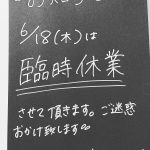 6/18(木)は
臨時休業
させて頂きます。ご迷惑
おかけ致します。